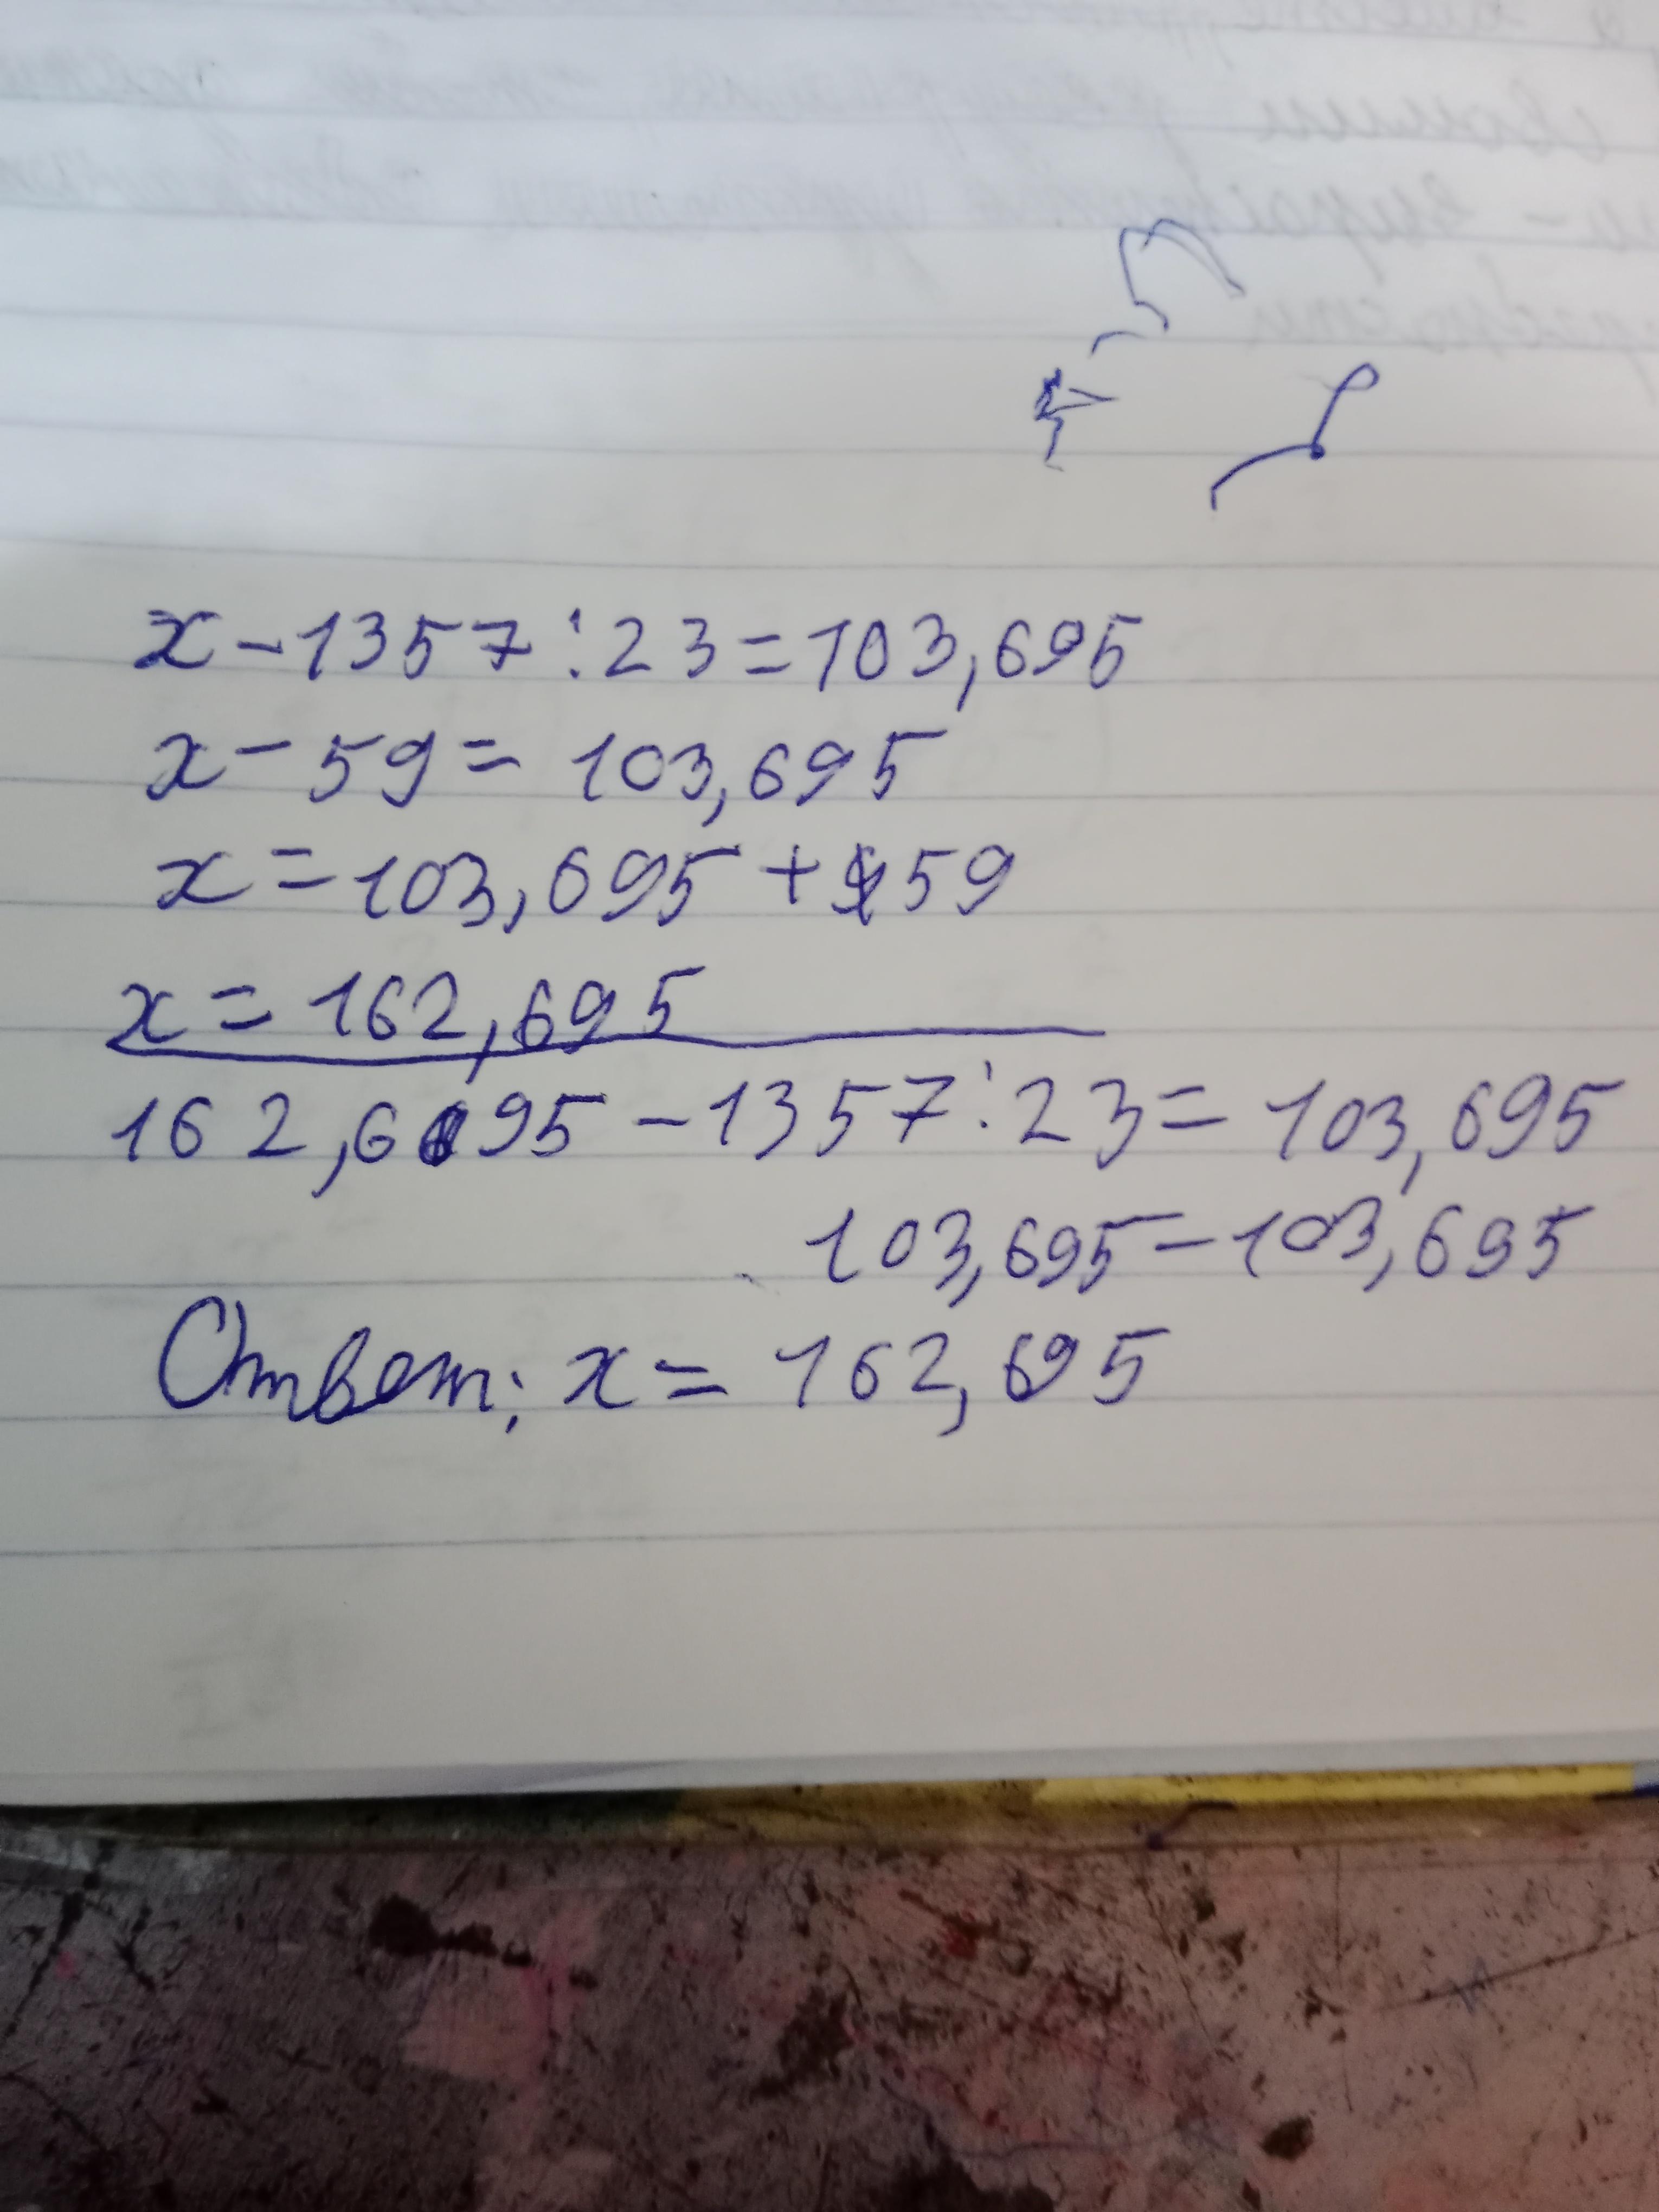 x-1357:23=103,695
x-59=103,695
x=103,695+59
x=162,695
162,695-1357:23=103,695
103,695=103,695
Ответ: x=162,695